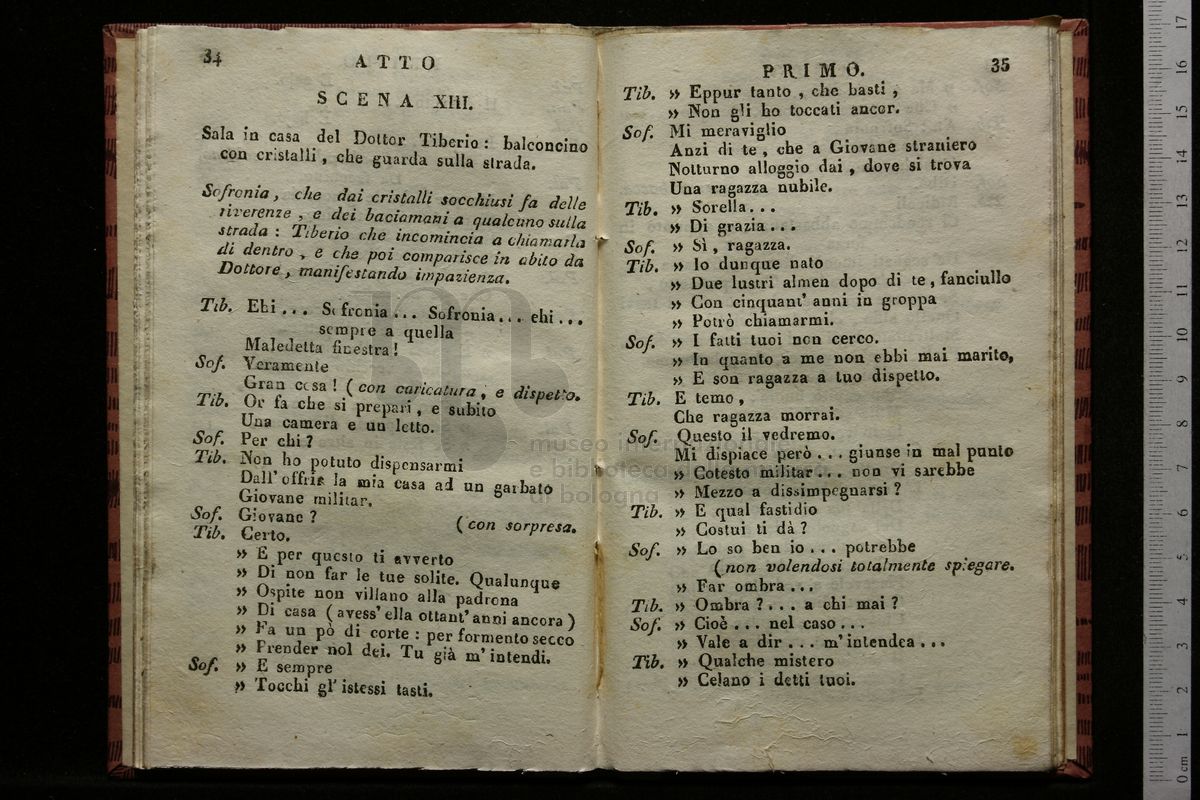 34
ATTO
SCENA XIII.
Sala in casa del Dottor Tiberio : balconcino
con cristalli, che guarda sulla strada.
Sofronia, che dai cristalli socchiusi fa delle
riverenze, e dei baciamani a qualcuno sulla
strada : Tiberio che incomincia a chiamarla
di dentro, e che poi comparisce in abito da
Dottore, manifestando impazienza.
Tib. Ehi... Sofronia... Sofronia... ehi...
sempre a quella
Maledetta finestra!
Sof. Veramente
Gran cosa! (con caricatura, e dispetto.
Tib. Or fa che si prepari, e subito
Una camera e un letto.
Sof. Per chi?
Tib. Non ho potuto dispensarmi
Dall' offrir la mia casa ad un garbato
Giovane militar.
Sof. Giovane? (con sorpresa.
Tib. Certo.
» E per questo ti avverto
» Di non far le tue solite. Qualunque
» Ospite non villano alla padrona
» Di casa (avess' ella ottant' anni ancora)
» Fa un pò di corte : per formento secco
» Prender nol dei. Tu già m' intendi.
Sof. » E sempre
» Tocchi gl' istessi tasti.
PRIMO.
35
Tib. » Eppur tanto, che basti,
» Non gli ho toccati ancor.
Sof. Mi meraviglio
Anzi di te, che a Giovane straniero
Notturno alloggio dai, dove si trova
Una ragazza nubile.
Tib. » Sorella...
» Di grazia...
Sof. » Sì, ragazza.
Tib. » Io dunque nato
» Due lustri almen dopo di te, fanciullo
» Con cinquant' anni in groppa
» Potrò chiamarmi.
Sof. » I fatti tuoi non cerco.
» In quanto a me non ebbi mai marito,
» E son ragazza a tuo dispetto.
Tib. E temo,
Che ragazza morrai.
Sof. Questo il vedremo.
Mi dispiace però... giunse in mal punto
» Cotesto militar... non vi sarebbe
» Mezzo a dissimpegnarsi?
Tib. » E qual fastidio
» Costui ti dà?
Sof. » Lo so ben io... potrebbe
(non volendosi totalmente spiegare.
» Far ombra...
Tib. » Ombra?... a chi mai?
Sof. » Cioè... nel caso...
» Vale a dir... m' intendea...
Tib. » Qualche mistero
» Celano i detti tuoi.
museo inter
e biblioteca
di bologna
0 cm 1 2 3 4 5 6 7 8 9 10 11 12 13 14 15 16 17